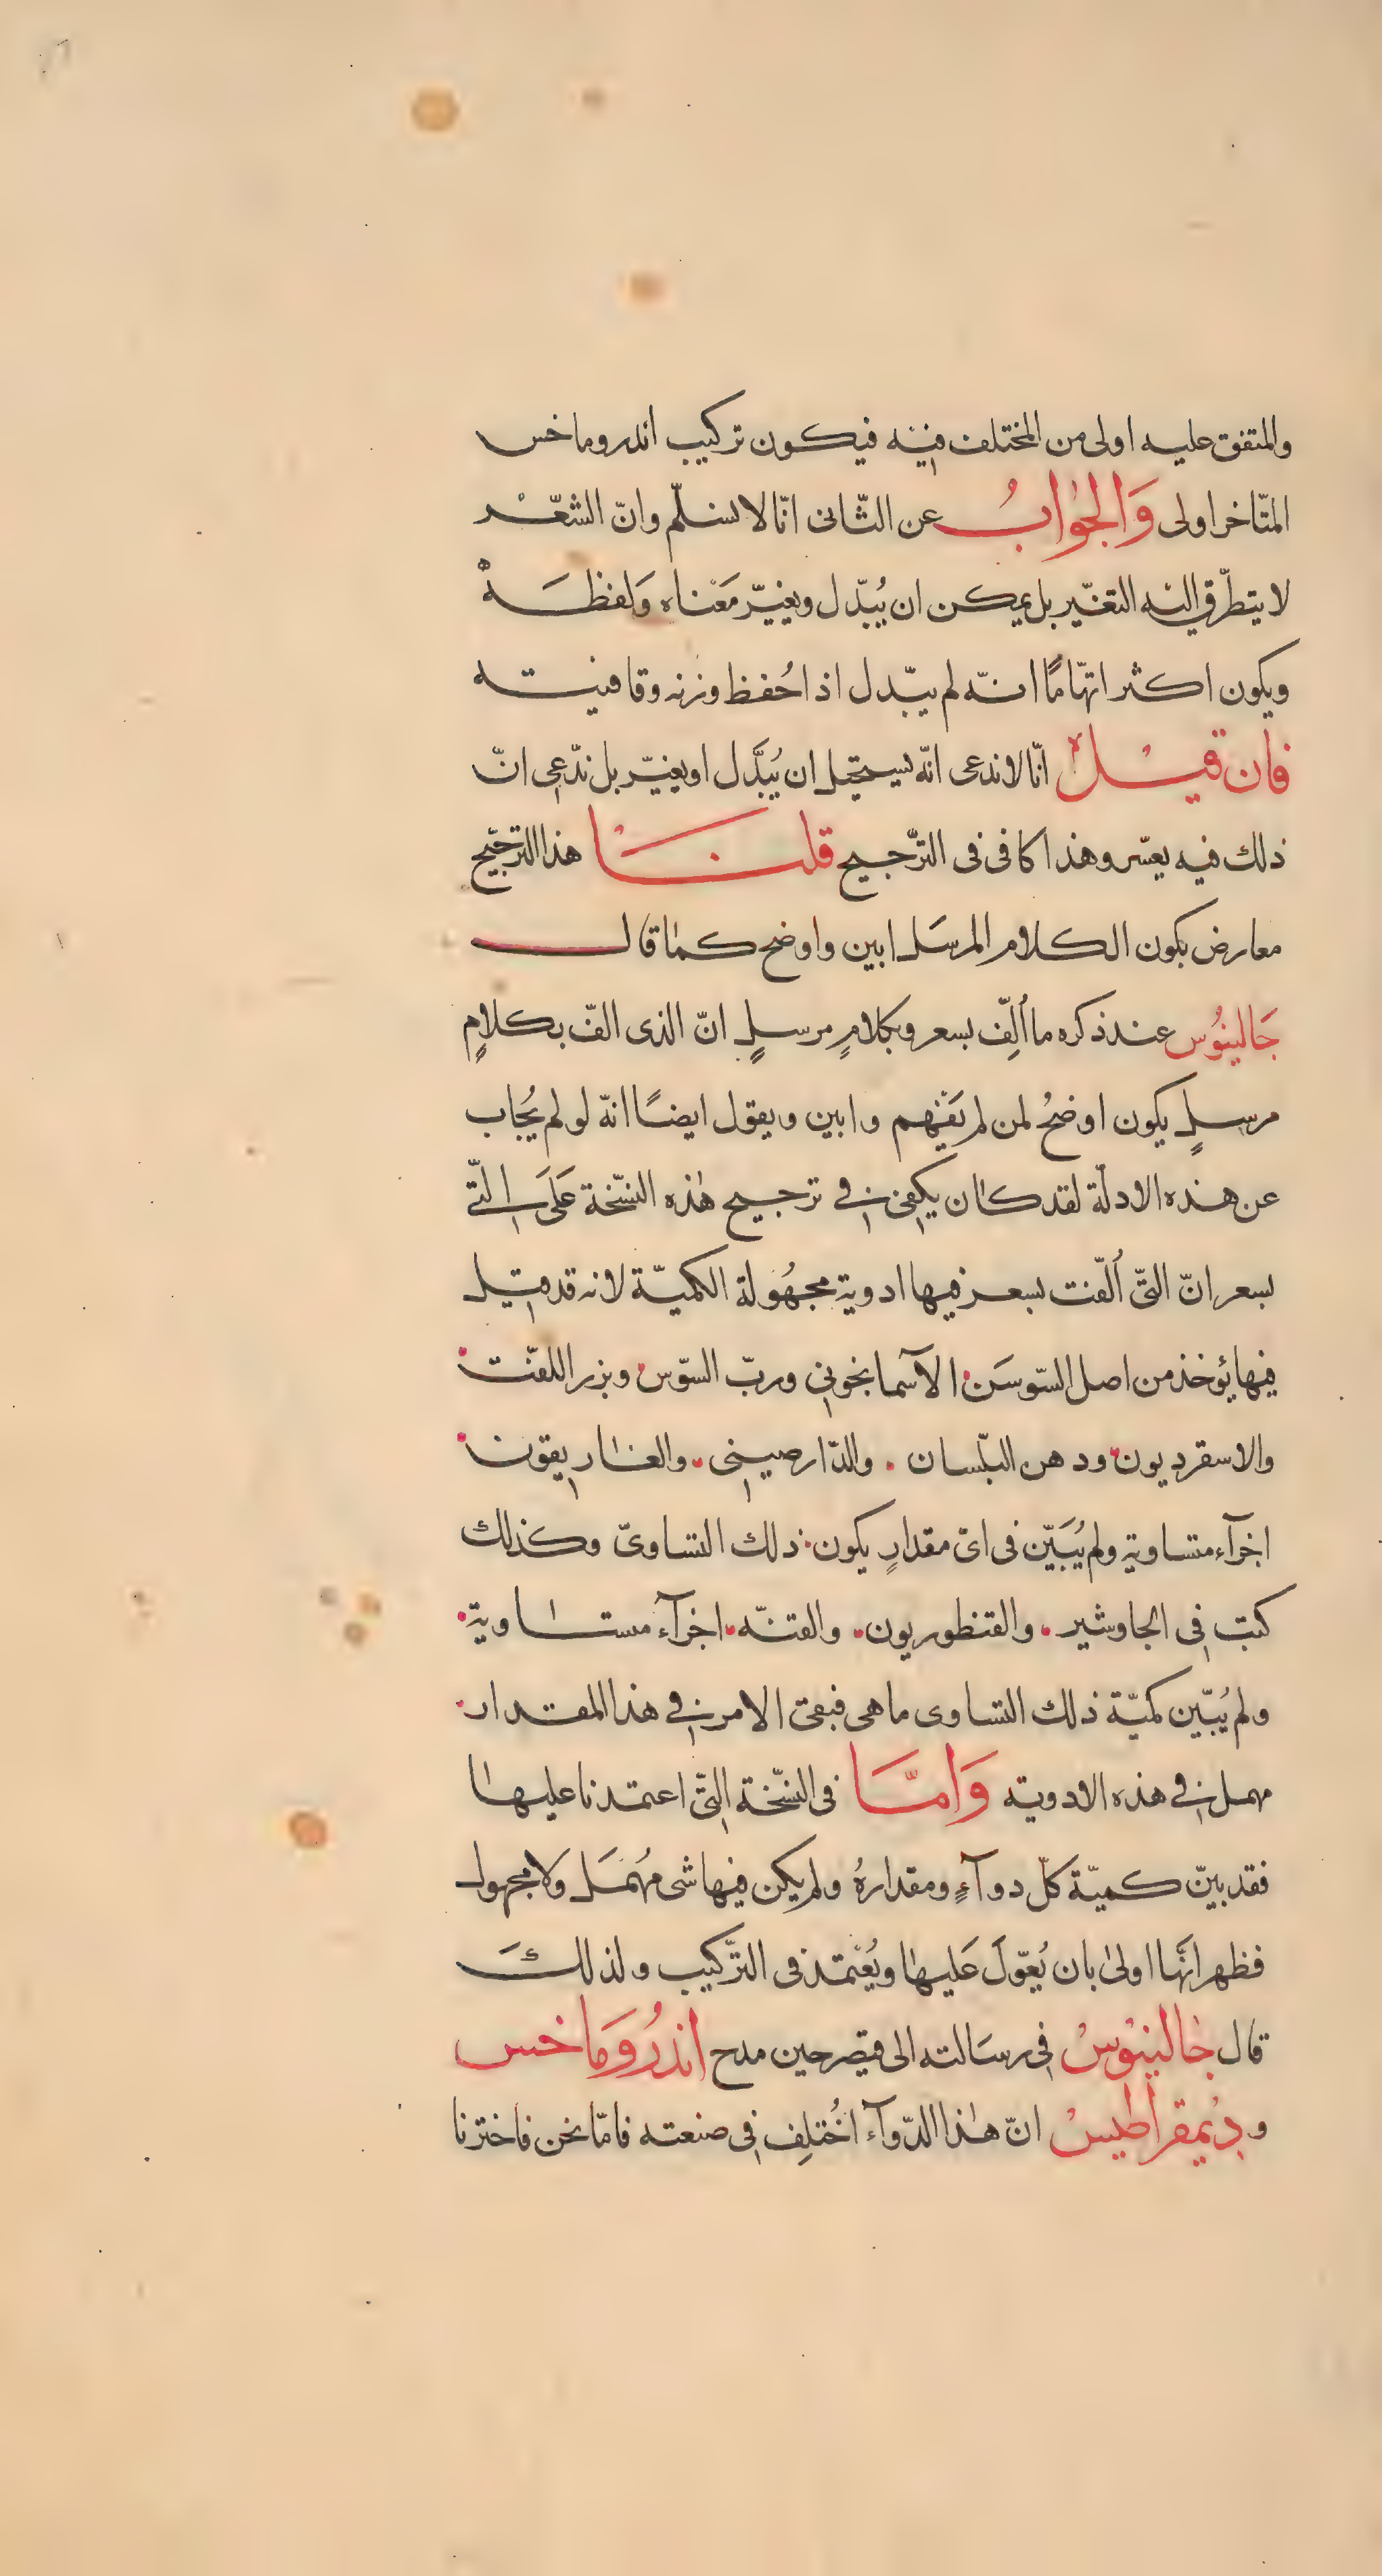 والمتفق عليه اولى من المختلف فيه فيكون تركيب اندروماخس
المتّاخر اولى وَالجوَابُ عن الثّانى انّا لا نسلّم وانّ الشعّر
لا يتطرّق اليه التغيّير بل يمكن ان يُبّدل ويغيّر مَعْناه وَلفظَهْ
ويكون اكثر اتهّامًا انّه لم يبّدل اذ احُفظ وزنه وقافيته
فان قيْلْ انّا لا ندعى انّه يستحيل ان يُبَّدل او يغيّر بل ندّعى انّ
ذلك فيه يعسّر وهذا كافى فى التّرجيح قلنَا هذا الترجّيح
معارض بكون الكلام المرسَل ابين واوضح كما قال
جَالينوُس عند ذكره ما اُلِّف بسعر وبكلامٍ مرسلٍ انّ الذى الفّ بكلامٍ
مرسلٍ يكون اوضحُ لمن لم يَفْهم وابين ويقول ايضًا انهّ لو لم يُجاب
عن هذه الادلّة لقد كان يكفى فى ترجيح هذه النسّخة عَلَى التّى
بسعر انّ التىّ اُلفّت بسعر فيها ادوية مجهُولة الكميّة لانه قد قيل
فيها يؤخذ من اصل السّوسَن الآسمانجونى وربّ السّوس وبزر اللفّت
والاسقرديون ودهن البلّسان والدّارصينى والغاريقون
اجزآء متساوية ولم يُبَيّن فى اىّ مقدارٍ يكون ذلك التساوىّ وكذلك
كتبّ فى الجاوشير والقنطوريون والقنّه اجزآء مستاوية
ولم يُبّين كميّة ذلك التساوى ما هى فبقى الامر فى هذا المقدار
مهمل فى هذه الادوية وَامّا فى النسّخة التىّ اعتمدنا عليها
فقد بيّن كميّة كلّ دوآءٍ ومقدارهُ ولم يكن فيها شى مُهمَل وَلا مجهول
فظهر انَّها اولى بان يُعّولَ عَليها ويُعْتمد فى الترّكيب ولذلكَ
قال جالينوْسْ فى رسَالته الى قيصر حين مدح اندرُوَماخس
و دِيْمقراطيسْ انّ هذا الدّوآء اخُتلِف فى صنعته فامّا نحن فاخترنا